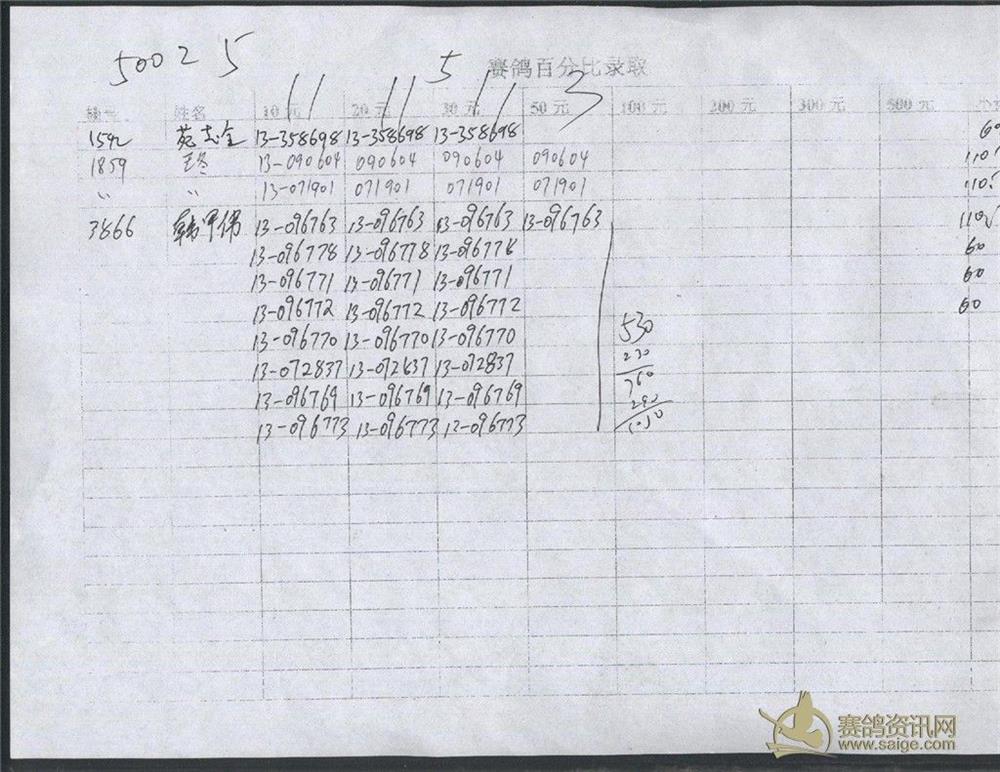 50025 5
赛鸽百分比录取
11 11 11 3
棚号 姓名 10元 20元 30元 50元 100元 200元 300元 500元
1592 苑志全 13-358698 13-358698 13-358698 60
1859 13-090604 090604 090604 090604 110
" " 13-071901 071901 071901 071901 110
3866 韩军伟 13-096763 13-096763 13-096763 13-096763 110
13-096778 13-096778 13-096778 60
13-096771 13-096771 13-096771 60
13-096772 13-096772 13-096772 60
13-096770 13-096770 13-096770 530
13-072837 13-072837 13-072837 230
13-096769 13-096769 13-096769 760
290
13-096773 13-096773 13-096773 1050
赛鸽资讯网
www.saige.com